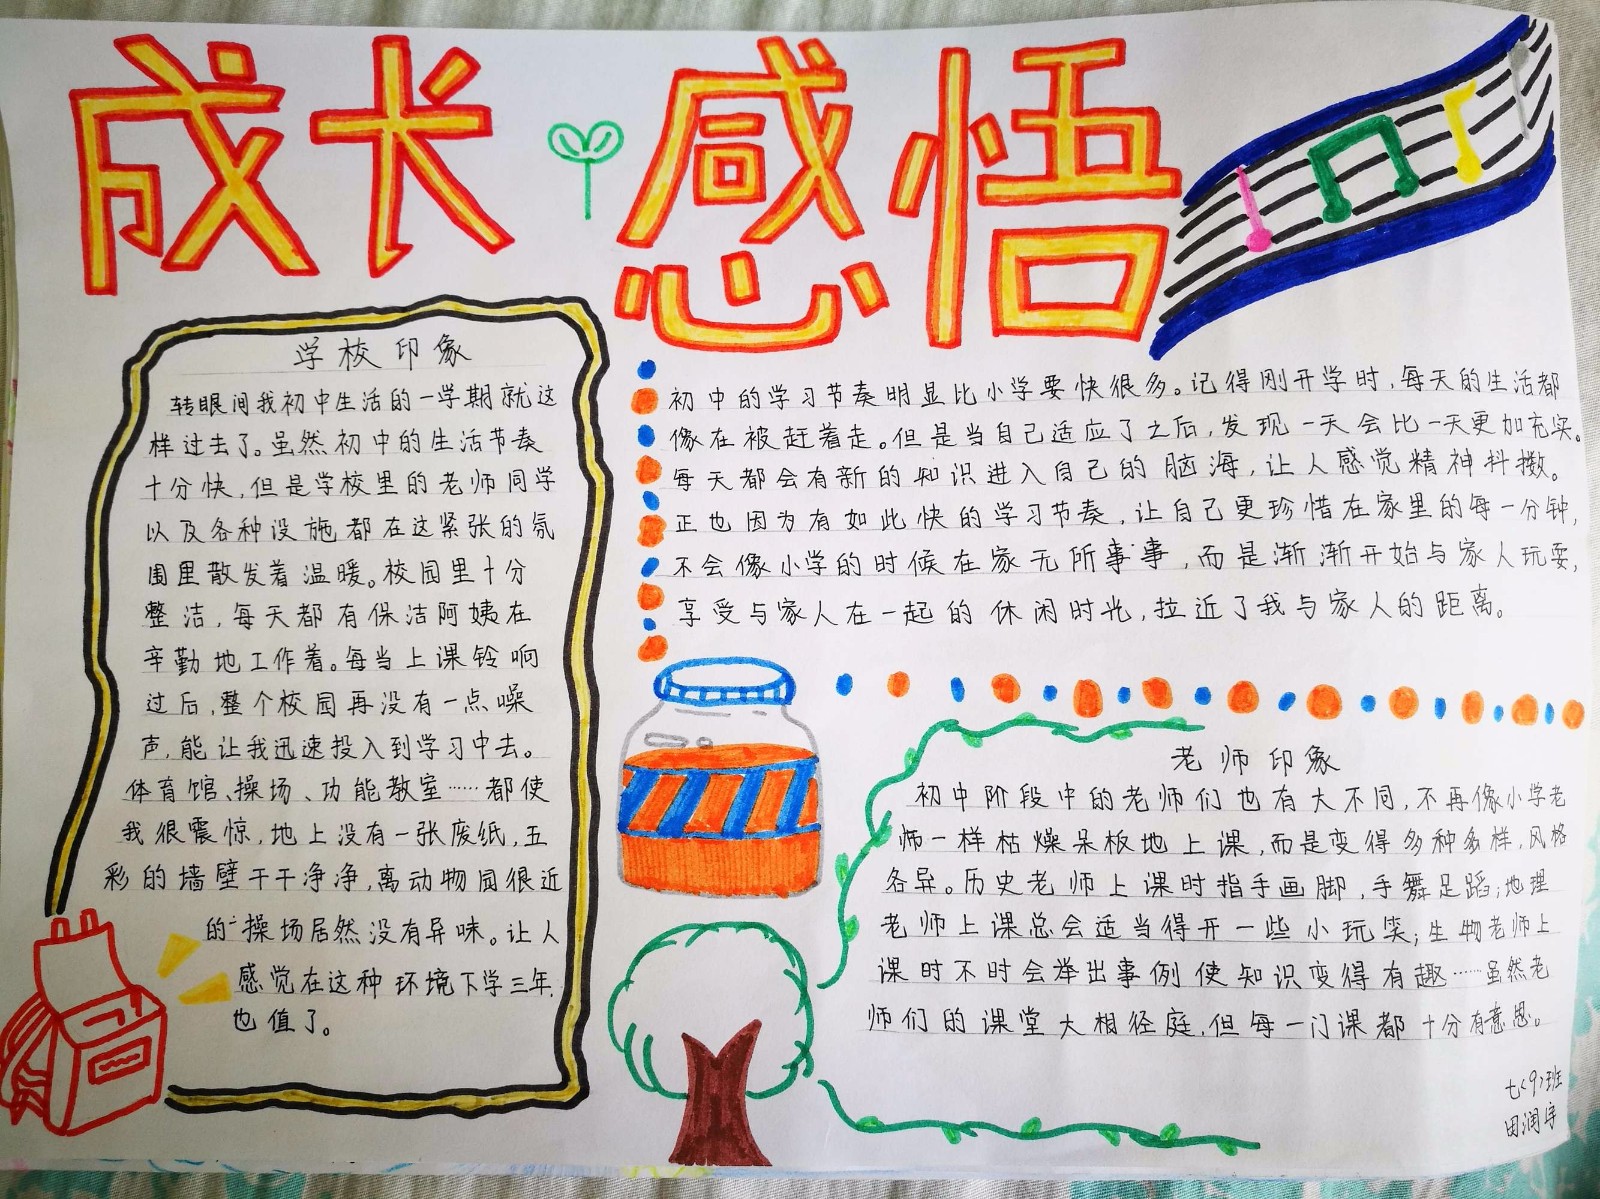 成长感悟
学校印象
转眼间我初中生活的一学期就这
样过去了。虽然初中的生活节奏
十分快，但是学校里的老师同学
以及各种设施都在这紧张的氛
围里散发着温暖。校园里十分
整洁，每天都有保洁阿姨在
辛勤地工作着。每当上课铃响
过后，整个校园再没有一点噪
声，能让我迅速投入到学习中去。
体育馆、操场、功能教室……都使
我很震惊，地上没有一张废纸，五
彩的墙壁干干净净，离动物园很近
的操场居然没有异味。让人
感觉在这种环境下学三年，
也值了。
初中的学习节奏明显比小学要快很多。记得刚开学时，每天的生活都
像在被赶着走。但是当自己适应了之后，发现一天会比一天更加充实。
每天都会有新的知识进入自己的脑海，让人感觉精神抖擞。
正也因为有如此快的学习节奏，让自己更珍惜在家里的每一分钟，
不会像小学的时候在家无所事事，而是渐渐开始与家人玩耍，
享受与家人在一起的休闲时光，拉近了我与家人的距离。
老师印象
初中阶段中的老师们也有大不同，不再像小学老
师一样枯燥呆板地上课，而是变得多种多样，风格
各异。历史老师上课时指手画脚，手舞足蹈；地理
老师上课总会适当得开一些小玩笑；生物老师上
课时不时会举出事例使知识变得有趣……虽然老
师们的课堂大相径庭，但每一门课都十分有意思。
七<9>班
田润宇